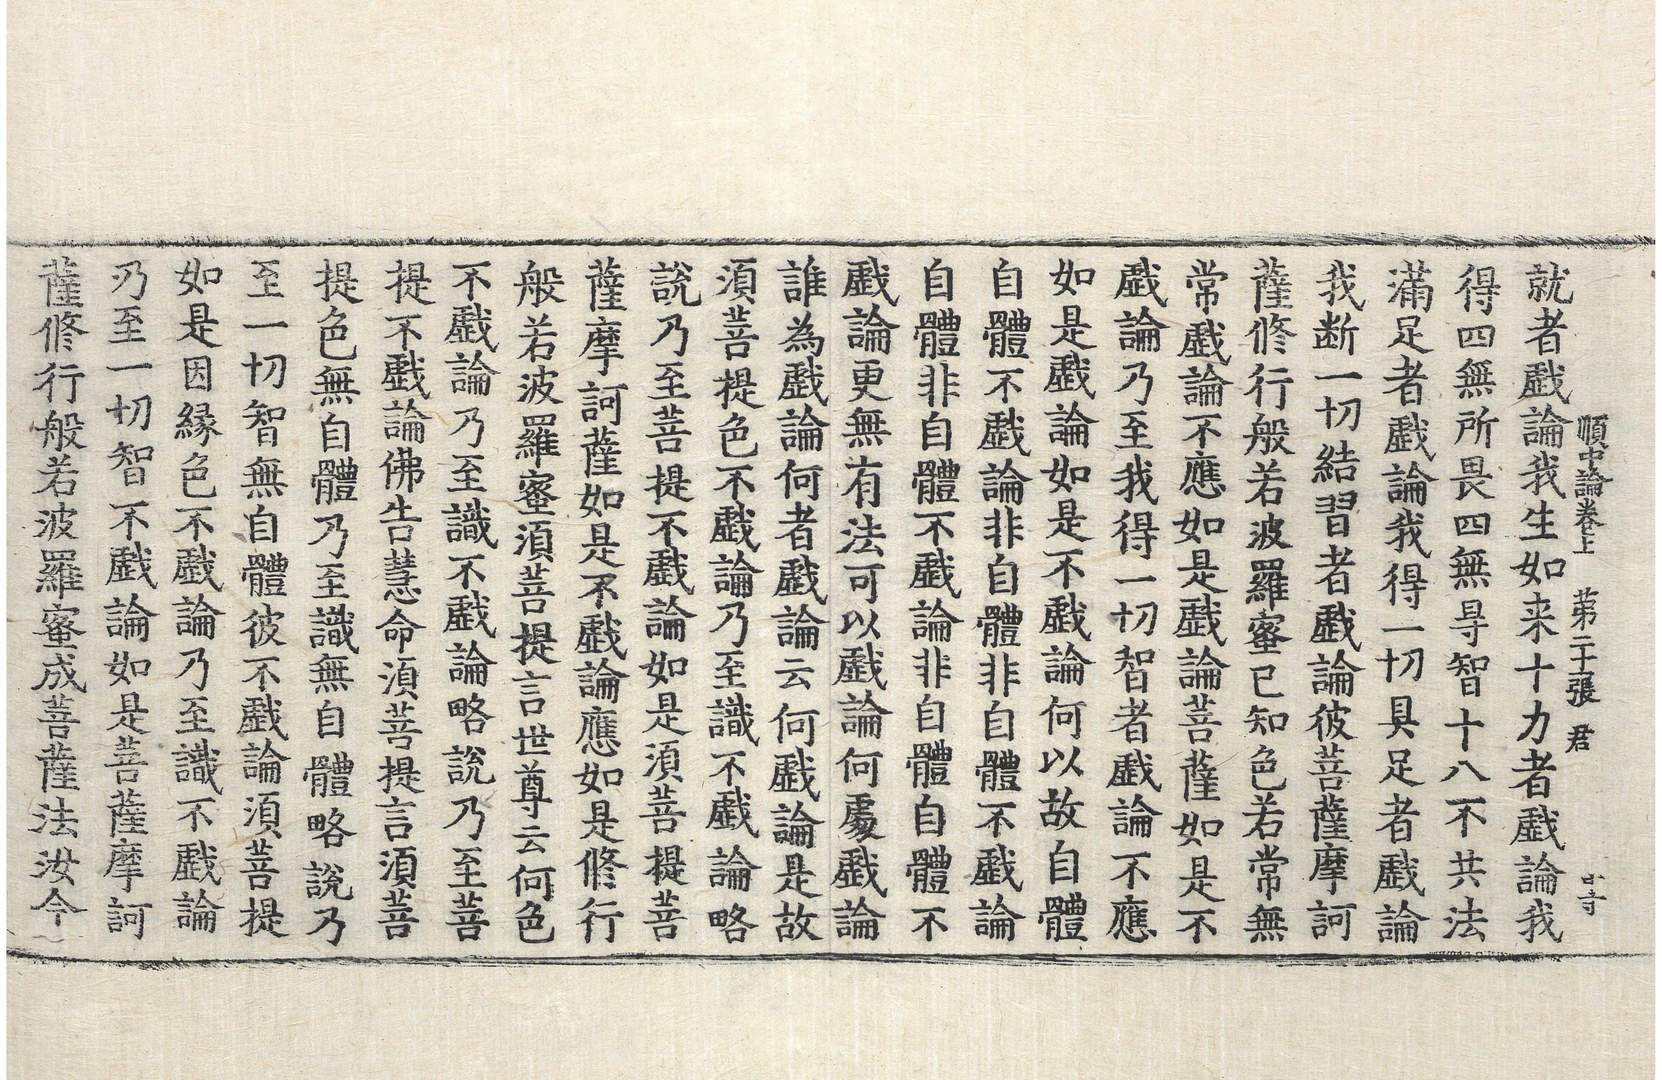 順中論卷上 第二十張 君
就者戱論我生如来十力者戱論我
得四無所畏四無㝵智十八不共法
滿足者戱論我得一切具足者戱論
我断一切結習者戱論彼菩薩摩訶
薩修行般若波羅蜜已知色若常無
常戱論不應如是戱論菩薩如是不
戱論乃至我得一切智者戱論不應
如是戱論如是不戱論何以故自體
自體不戱論非自體非自體不戱論
自體非自體不戱論非自體自體不
戱論更無有法可以戱論何處戱論
誰為戱論何者戱論云何戱論是故
須菩提色不戱論乃至識不戱論略
說乃至菩提不戱論如是須菩提菩
薩摩訶薩如是不戱論應如是修行
般若波羅蜜須菩提言世尊云何色
不戱論乃至識不戱論略說乃至菩
提不戱論佛告慧命須菩提言須菩
提色無自體乃至識無自體略說乃
至一切智無自體彼不戱論須菩提
如是因緣色不戱論乃至識不戱論
乃至一切智不戱論如是菩薩摩訶
薩修行般若波羅蜜成菩薩法汝今